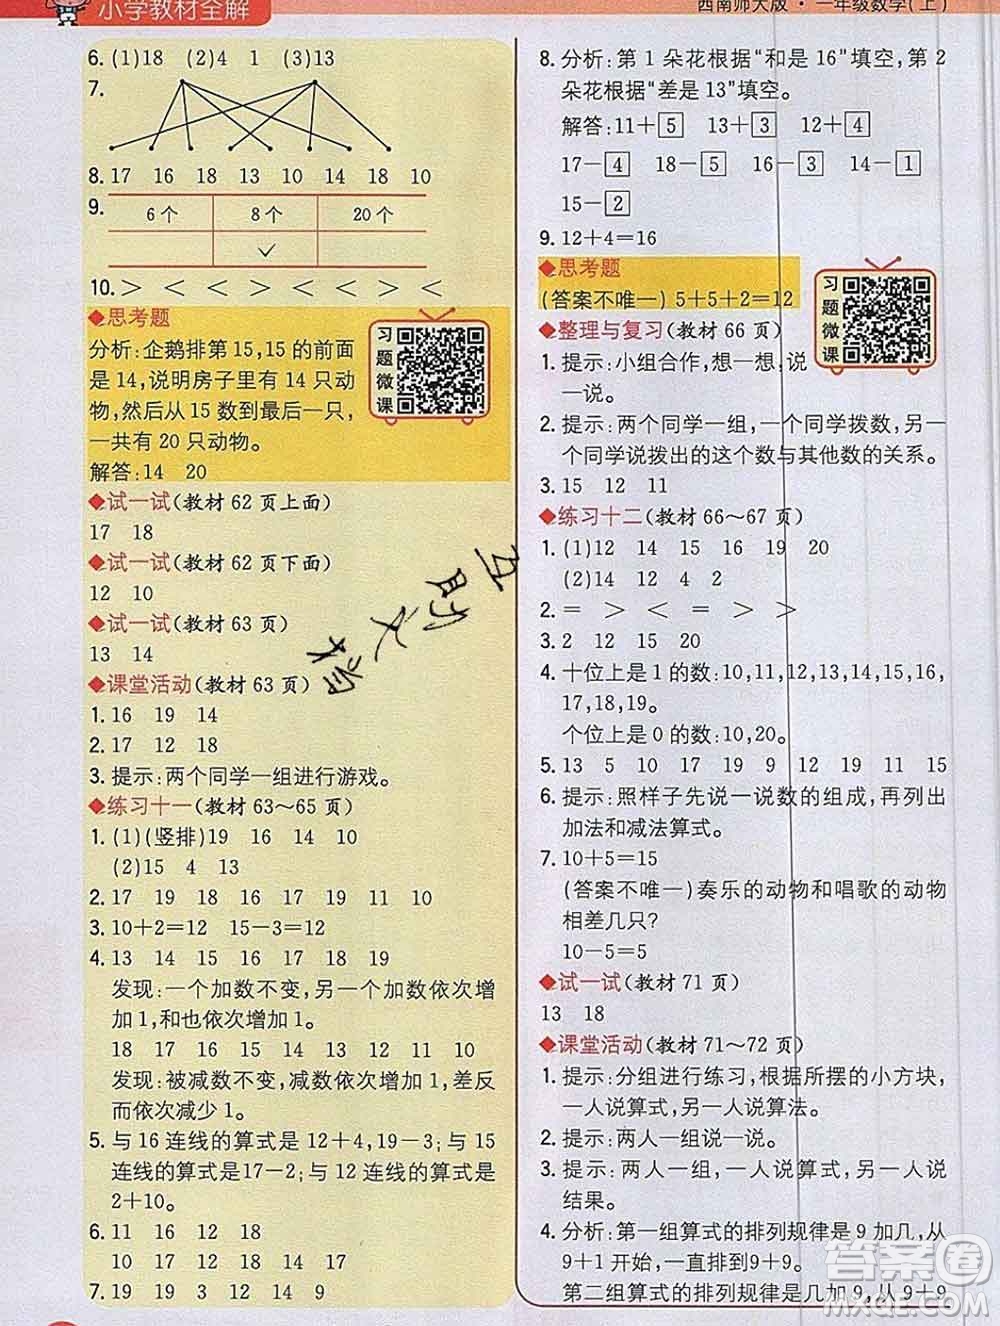 小学教材全解
西南师大版·一年级数学(上)
6. (1)18 (2)4 1 (3)13
7.
8. 17 16 18 13 10 14 18 10
9.
6个 8个 20个
✓
10. > < < < > < <
◆思考题
分析:企鹅排第15,15的前面
是14,说明房子里有14只动
物,然后从15数到最后一只,
一共有20只动物。
解答:14 20
习题微课
◆试一试(教材62页上面)
17 18
◆试一试(教材62页下面)
12 10
◆试一试(教材63页)
13 14
◆课堂活动(教材63页)
1. 16 19 14
2. 17 12 18
3. 提示:两个同学一组进行游戏。
◆练习十一(教材63~65页)
1. (1)(竖排)19 16 14 10
(2)15 4 13
2. 17 19 17 19 18 11 10
3. 10+2=12 15-3=12
4. 13 14 15 16 17 18 19
发现:一个加数不变,另一个加数依次增
加1,和也依次增加1。
18 17 16 15 14 13 12 11 10
发现:被减数不变,减数依次增加1,差反
而依次减少1。
5. 与16连线的算式是12+4,19-3;与15
连线的算式是17-2;与12连线的算式是
2+10。
6. 11 16 12 18
10 17 12 18
7. 19 19 13 12 11 14
8. 分析:第1朵花根据“和是16”填空,第2
朵花根据“差是13”填空。
解答:11+5 13+3 12+4
17-4 18-5 16-3 14-1
15-2
9. 12+4=16
◆思考题
(答案不唯一)5+5+2=12
习题微课
◆整理与复习(教材66页)
1. 提示:小组合作,想一想,说
一说。
2. 提示:两个同学一组,一个同学拨数,另一
个同学说拨出的这个数与其他数的关系。
3. 15 12 11
◆练习十二(教材66~67页)
1. (1)12 14 15 17 19 20
(2)14 12 4 2
2. = > < = > >
3. 2 12 15 20
4. 十位上是1的数:10,11,12,13,14,15,16,
17,18,19。
个位上是0的数:10,20。
5. 13 5 10 17 19 9 12 11 15
6. 提示:照样子先说一说数的组成,再列出
加法和减法算式。
7. 10+5=15
(答案不唯一)奏乐的动物和唱歌的动物
相差几只?
10-5=5
◆试一试(教材71页)
13 18
◆课堂活动(教材71~72页)
1. 提示:分组进行练习,根据所摆的小方块,
一人说算式,另一人说算法。
2. 提示:两人一组说一说。
3. 提示:两人一组,一人说算式,另一人说
结果。
4. 分析:第一组算式的排列规律是9加几,从
9+1开始,一直排到9+9。
第二组算式的排列规律是几加9,从9+9
答案圈
MXQE.COM